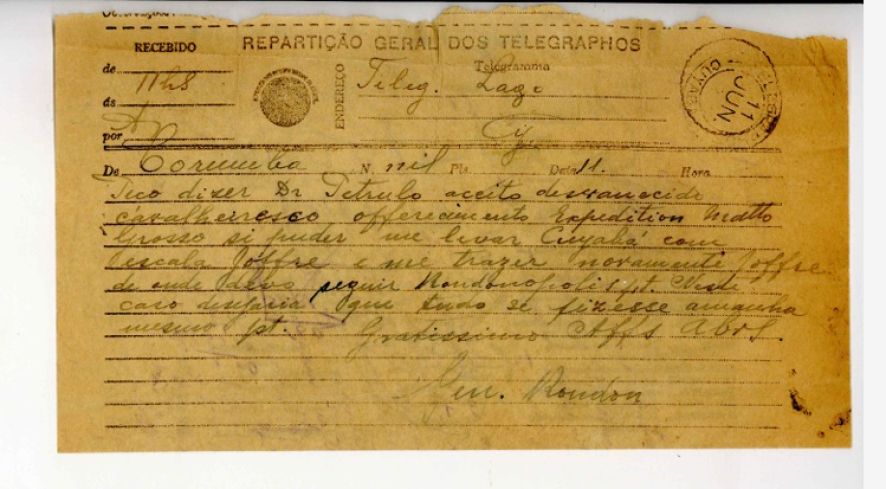 RECEBIDO
REPARTIÇÃO GERAL DOS TELEGRAPHOS
Telegramma
de 11hs
ás
por
ENDEREÇO
Teleg. Lago
Cy
CUYABÁ
11 JUN
De Corumba N. nil Pls. Data 11. Hora
Peço dizer Dr Petrulo aceito desvanecido
cavalheiresco offerecimento Expedition Matto
Grosso si puder me levar Cuyabá com
escala Joffre e me trazer novamente Joffre
de onde devo seguir Rondonopolis pt. Neste
caso desejaria que tudo se fizesse amanha
mesmo pt. Gratissimo Affs Abrs.
Gen. Rondon